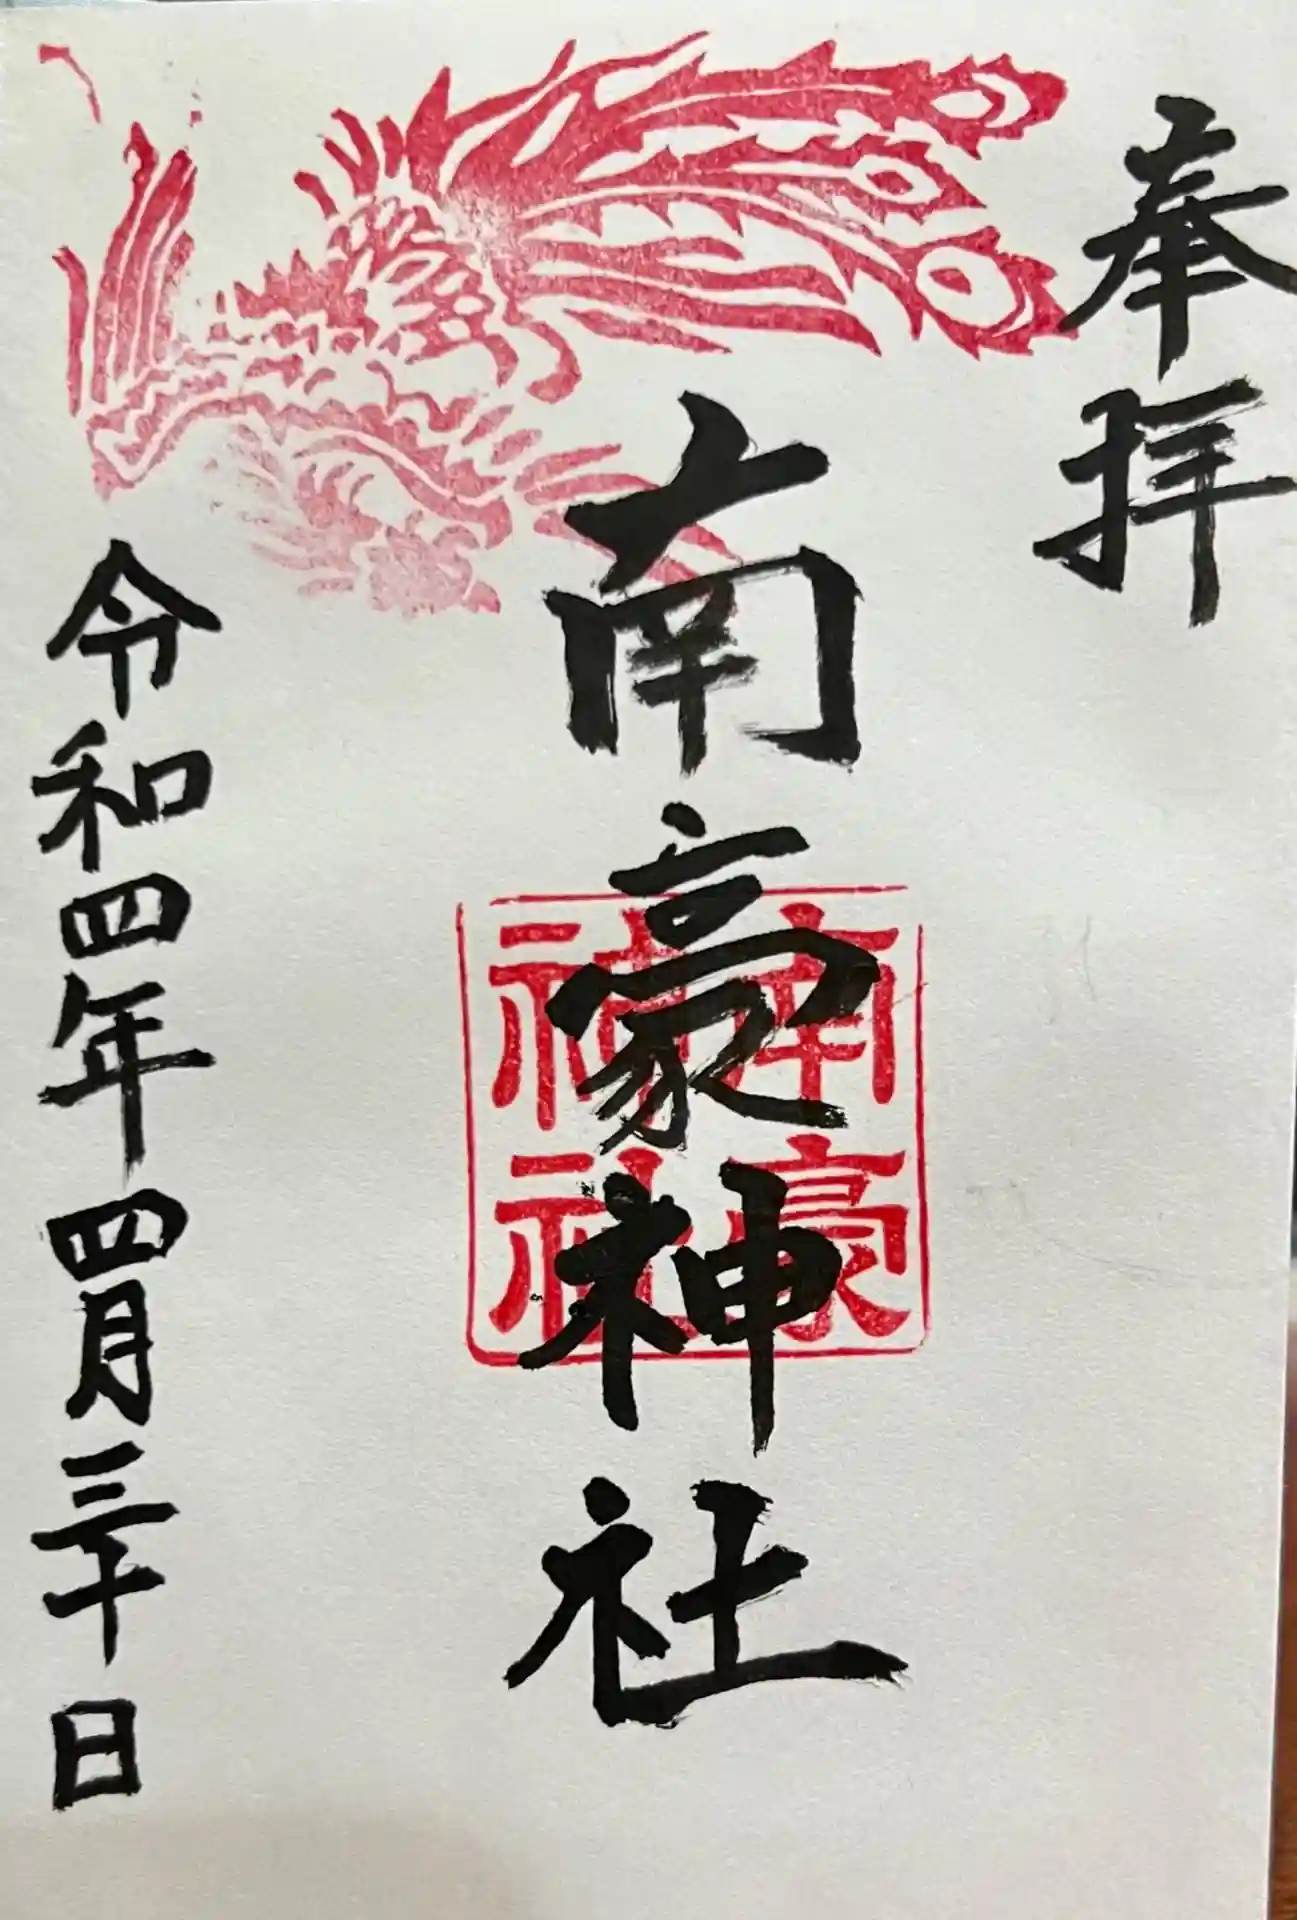 奉拝
南豪神社
南豪
神社
令和四年四月三十日